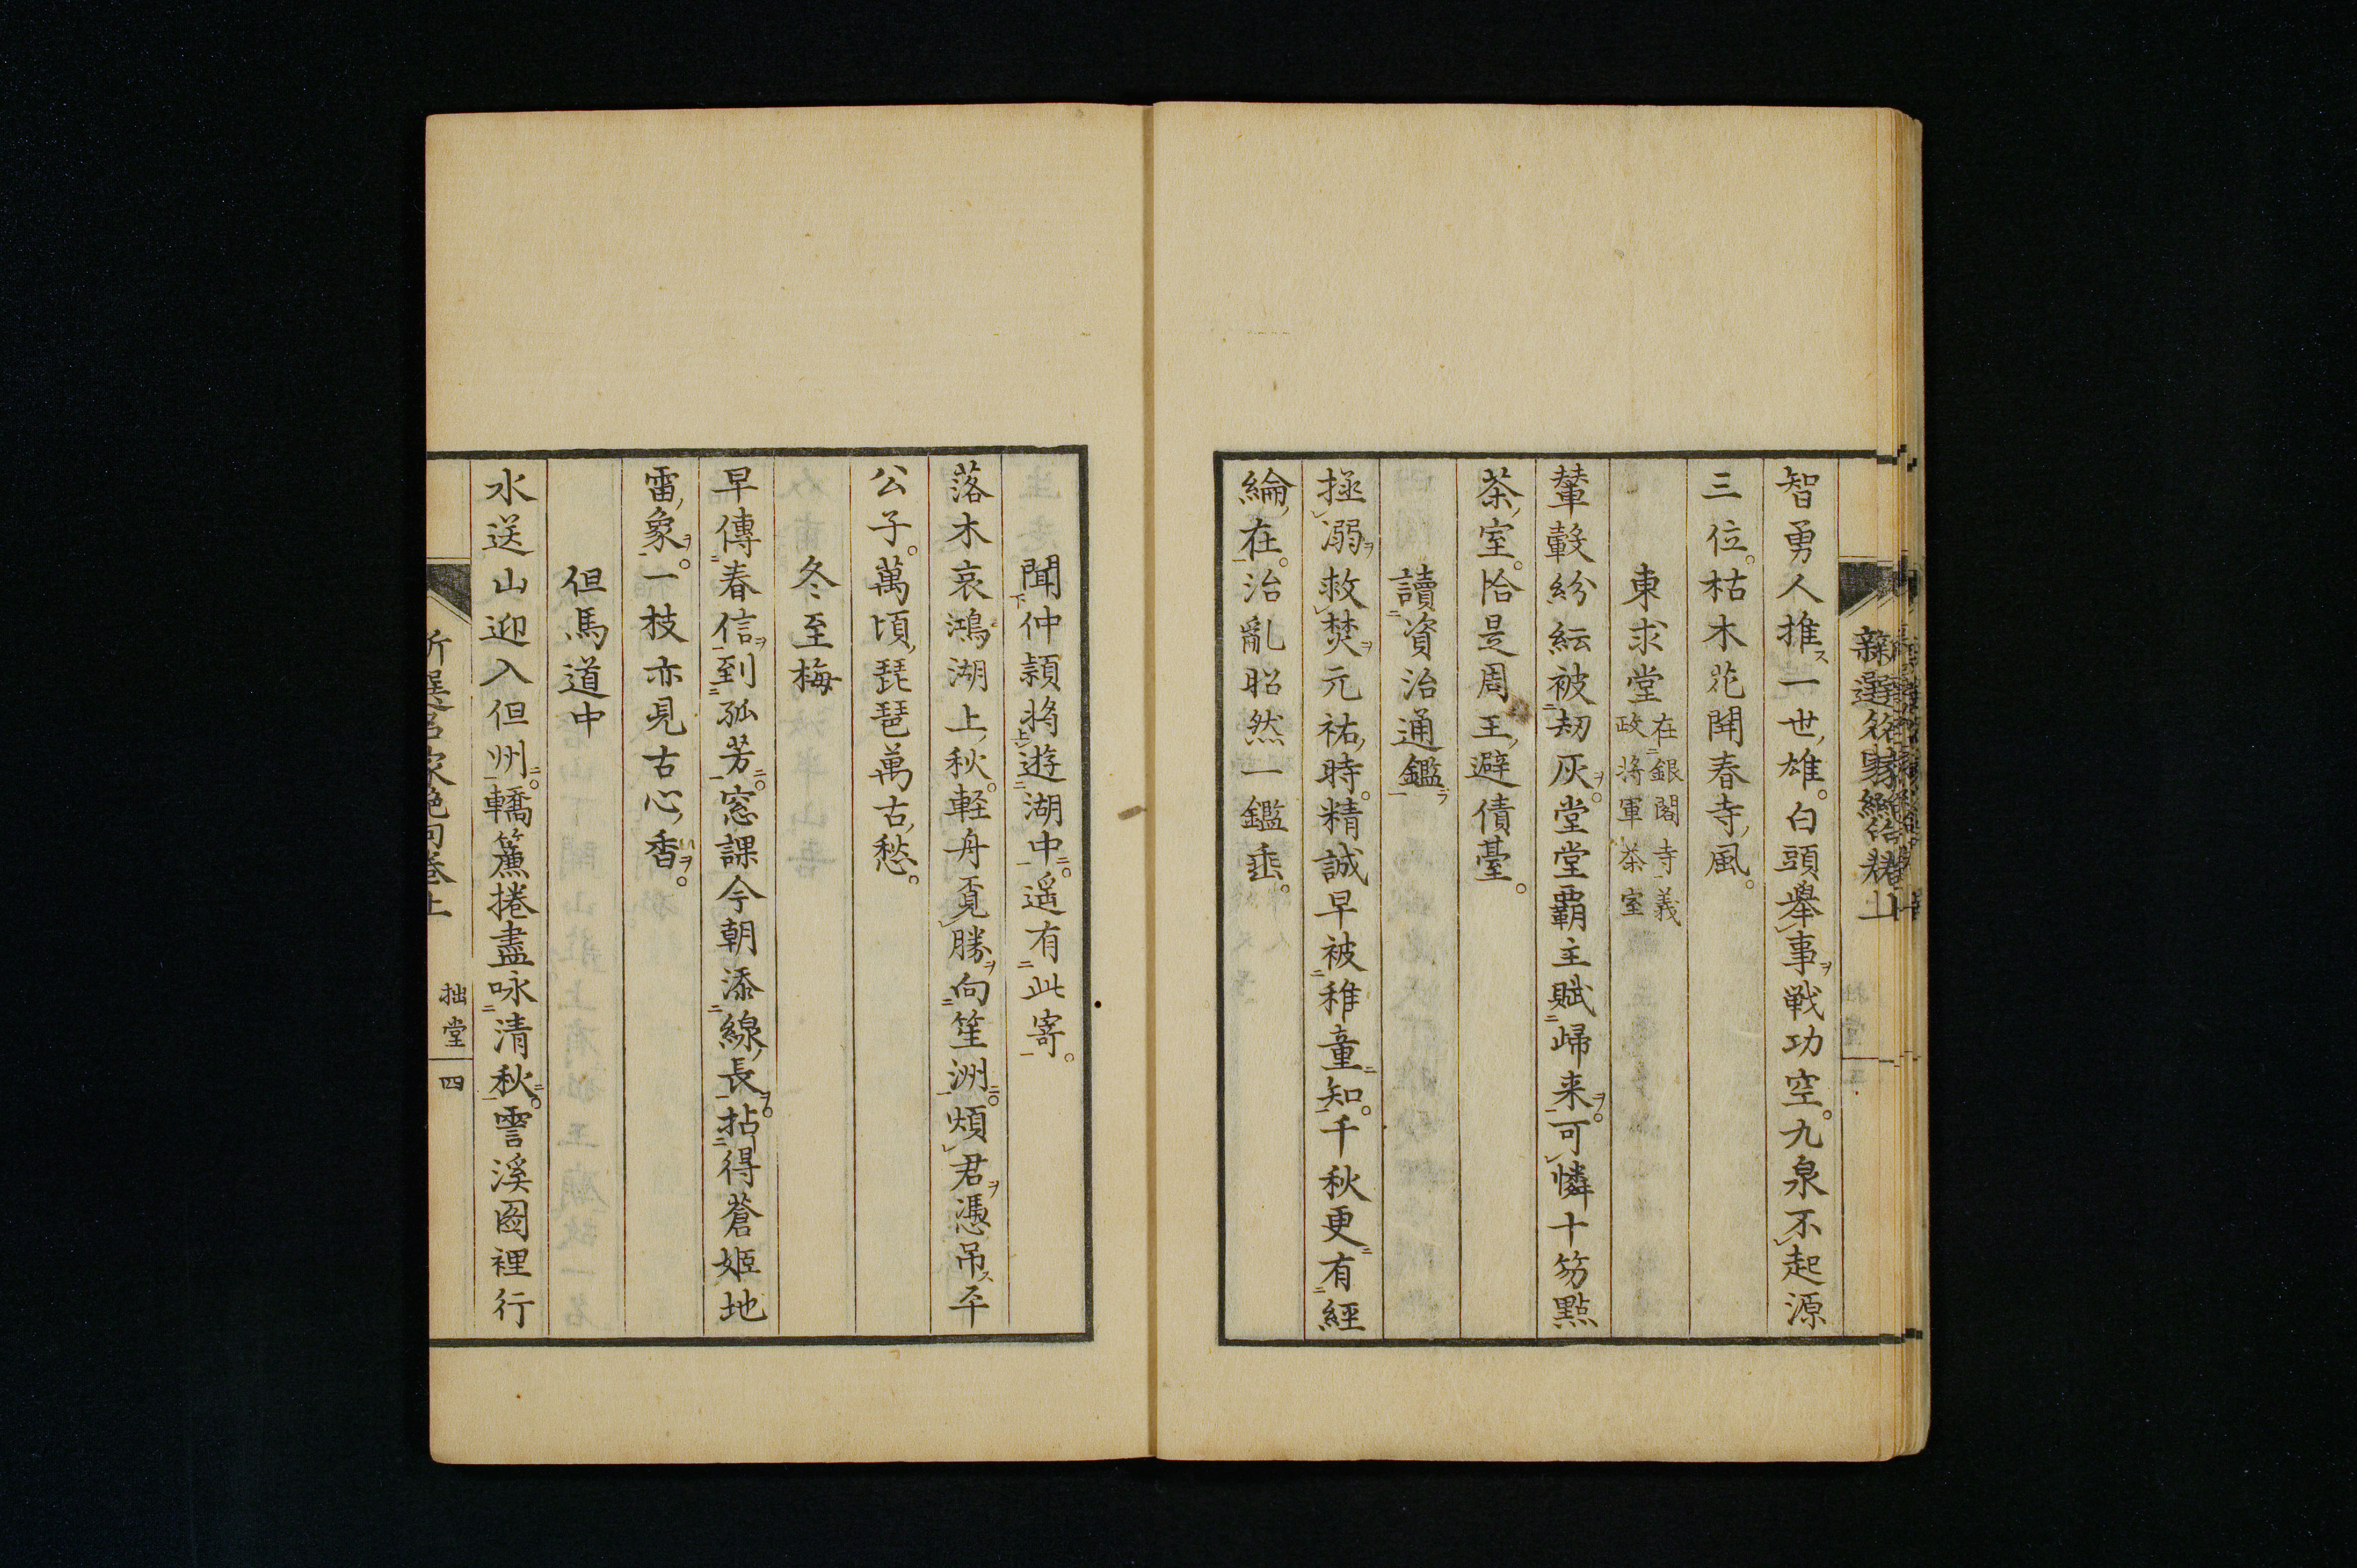 智勇人推一世雄白頭舉事戦功空九泉不起源
三位枯木花開春寺風
東求堂在銀閣寺義政将軍茶室
輦轂紛紜被劫灰堂堂覇主賦歸来可憐十笏點
茶室恰是周王避債臺
讀資治通鑑
拯溺救焚元祐時精誠早被稚童知千秋更有經
綸在治亂昭然一鑑垂
聞仲頴将遊湖中遥有此寄
落木哀鴻湖上秋軽舟覔勝向笙洲煩君憑吊平
公子萬頃琵琶萬古愁
冬至梅
早傳春信到孤芳窓課今朝添線長拈得蒼姬地
雷象一枝亦見古心香
但馬道中
水送山迎入但州轎簾捲盡咏清秋雲溪圖裡行
拙堂
四